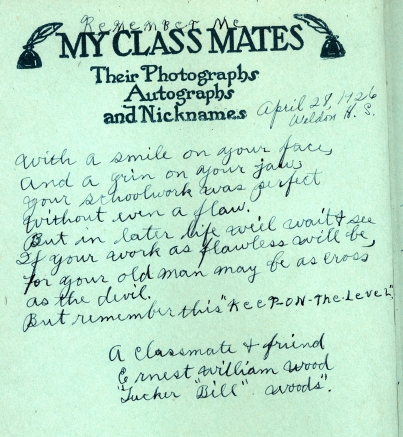 Remember Me
MY CLASS MATES
Their Photographs
Autographs
and Nicknames
April 28, 1926
Weldon H. S.
With a smile on your face,
And a grin on your jaw,
Your schoolwork was perfect
Without even a flaw.
But in later life we'll wait & see
If your work as flawless will be,
For your old man may be as cross
as the devil.
But remember this "KEEP-ON-THE-LEVEL".
A classmate & friend
Ernest William Wood
"Tucker "Bill" Woods".